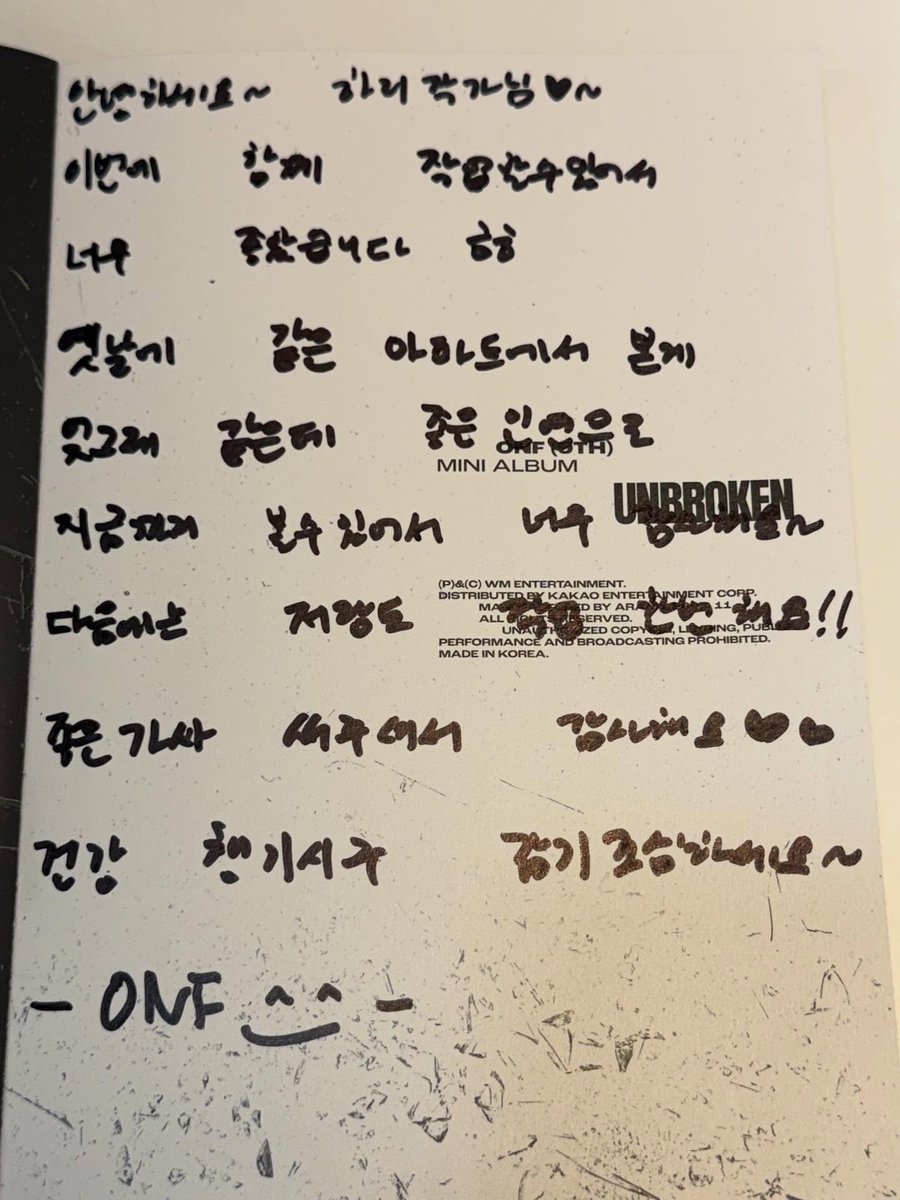 안녕하세요~ 하리 작가님♥~
이번에 함께 작업할수있어서
너무 좋았습니다 헤헤
옛날에 같은 아파트에서 본게
엊그래 같은데 좋은 인연으로
ONF (8TH)
MINI ALBUM
UNBROKEN
지금까지 볼수있어서 너무
(P)&(C) WM ENTERTAINMENT.
DISTRIBUTED BY KAKAO ENTERTAINMENT CORP.
ALL RIGHTS RESERVED.
UNAUTHORIZED COPYING, LENDING, PUBLIC
PERFORMANCE AND BROADCASTING PROHIBITED.
MADE IN KOREA.
다음에는 저랑도 작업 한번 해요!!
좋은 가사 써주셔서 감사해요♥♥
건강 챙기시구 감기조심하세요~
- ONF ^‿^ -